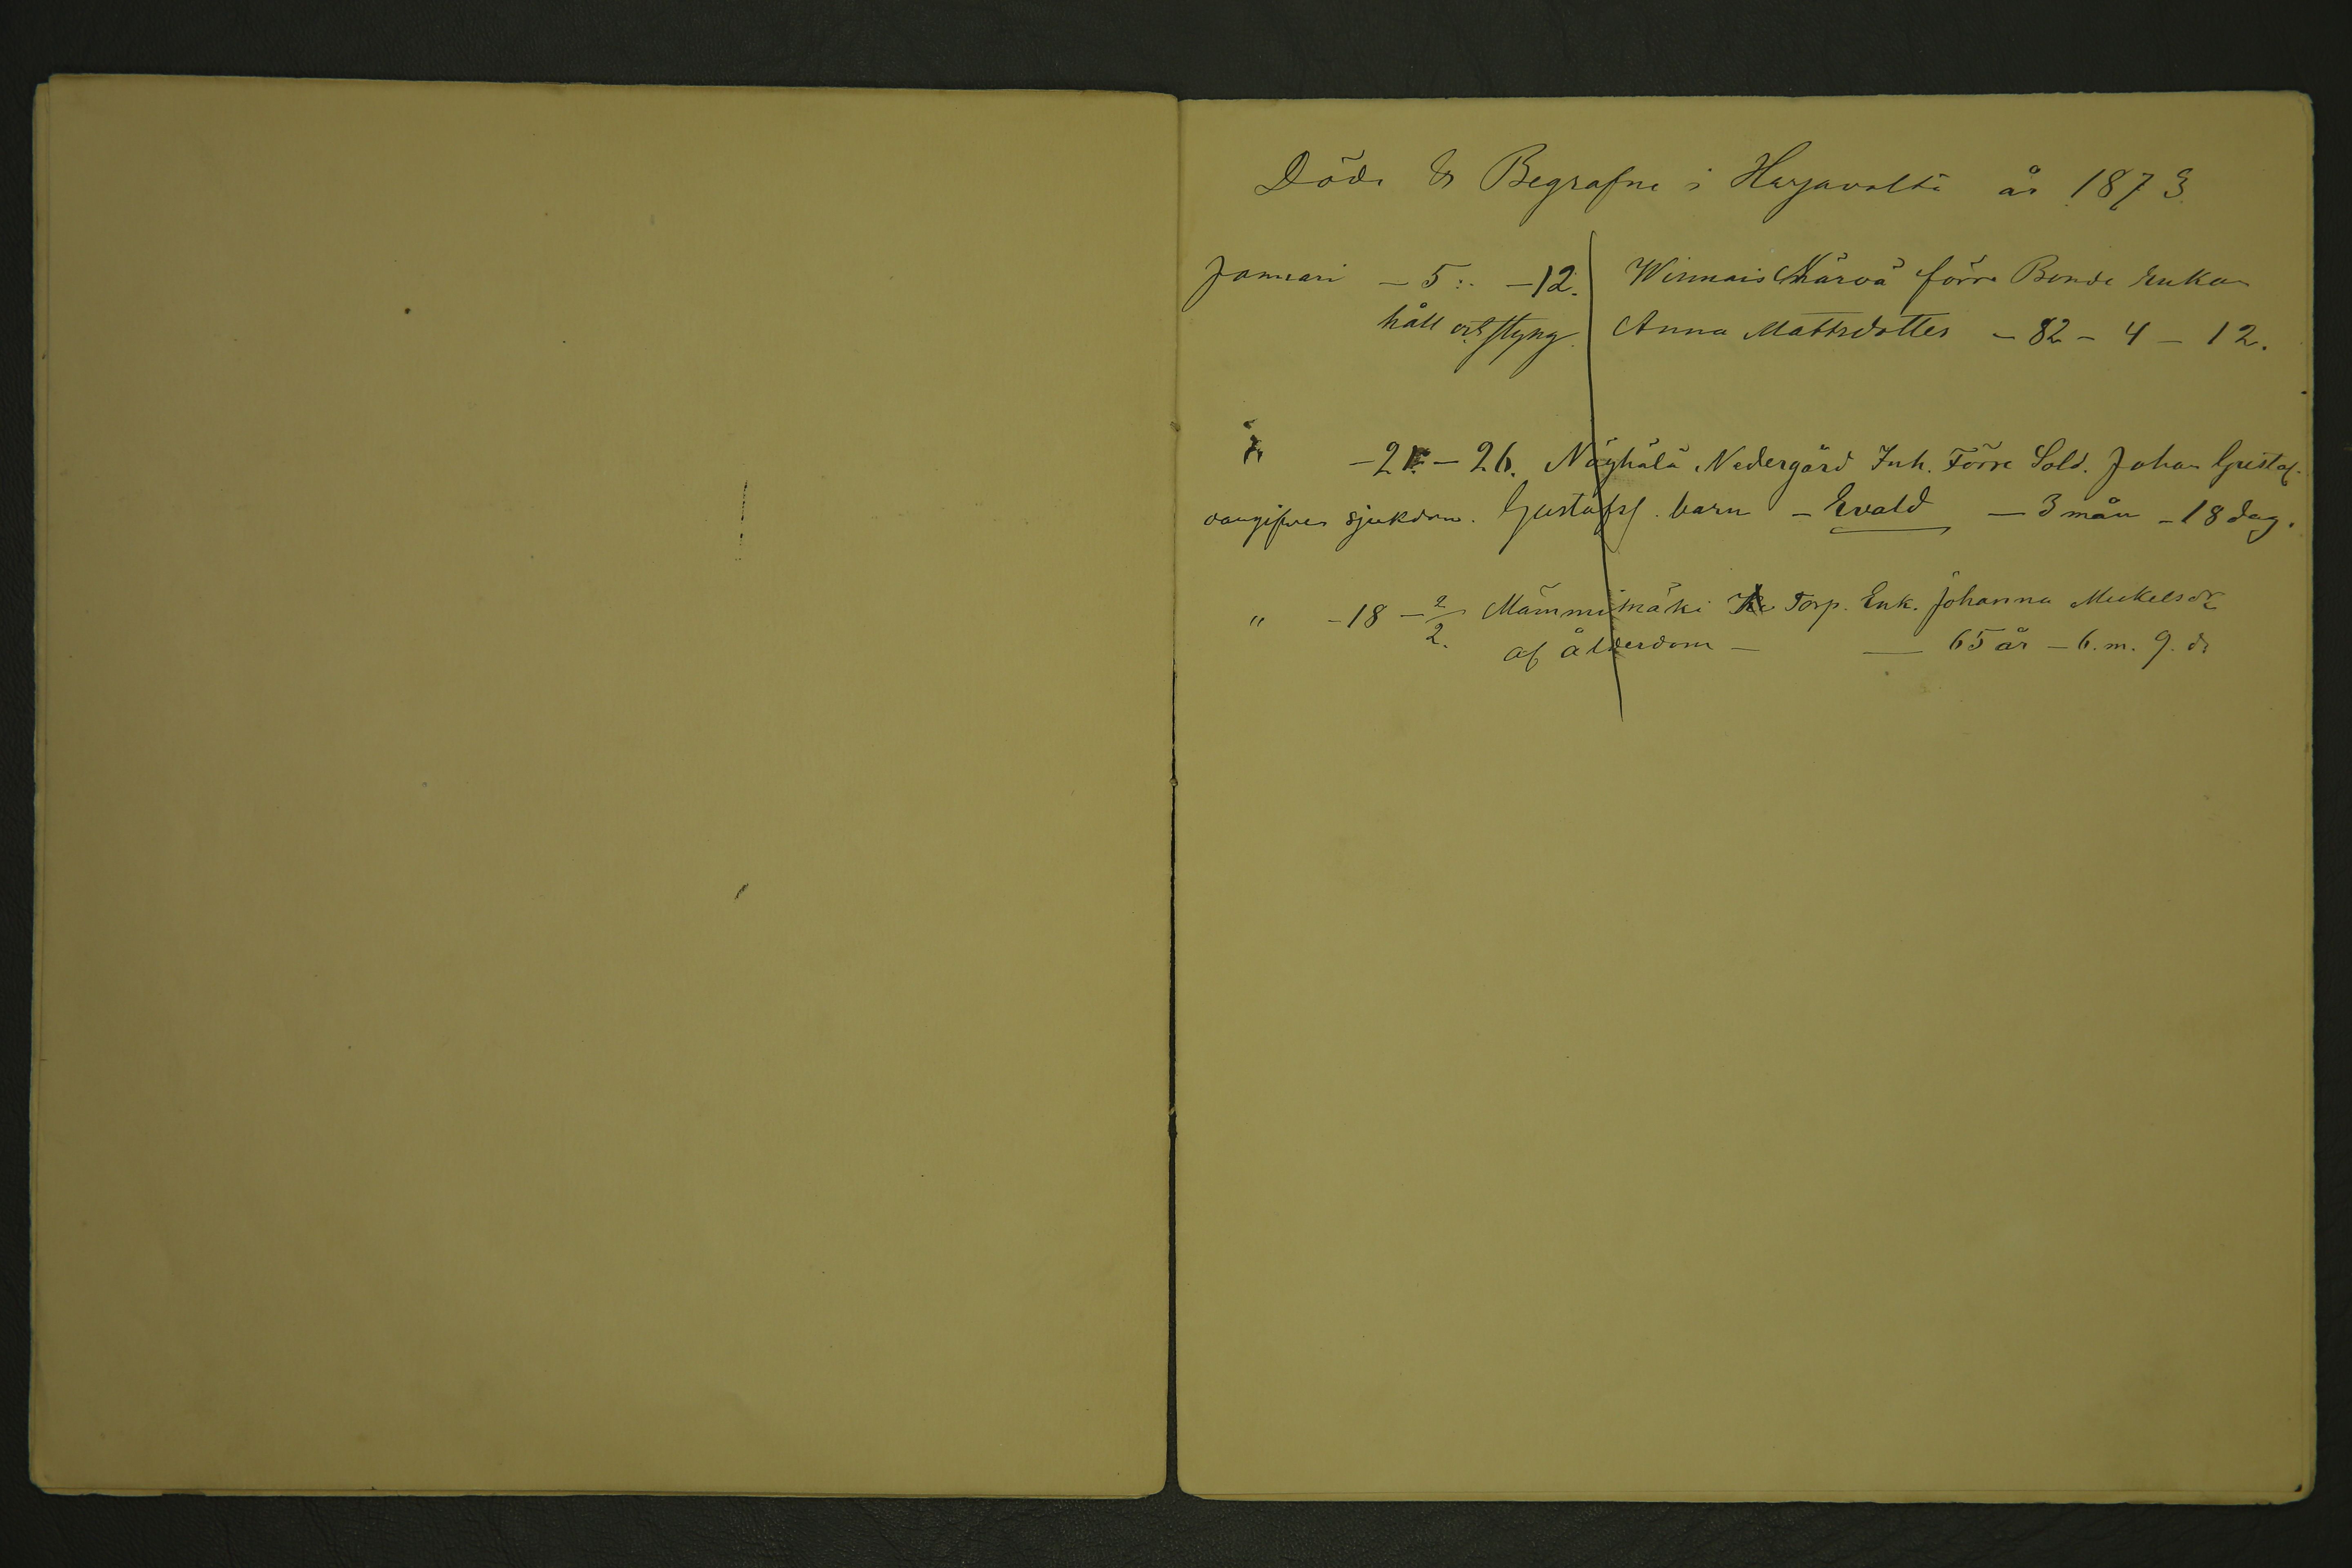 Döde & Begrafne i Harjavalta år 1873
Januari – 5. – 12. Winnais Närvä förre Bonde Enkan
håll och styng. Anna Mattsdotter – 82 – 4 – 12.
" – 21. – 26. Näyhälä Nedergård Inh. Förre Sold. Johan Gustaf
oangifven sjukdom. Gustafss. barn – Evald – 3 mån – 18 dag.
" – 18 – 2/2. Mämmimäki Torp. Enk. Johanna Mickelsdr
af ålderdom – — 65 år – 6. m. 9. d.